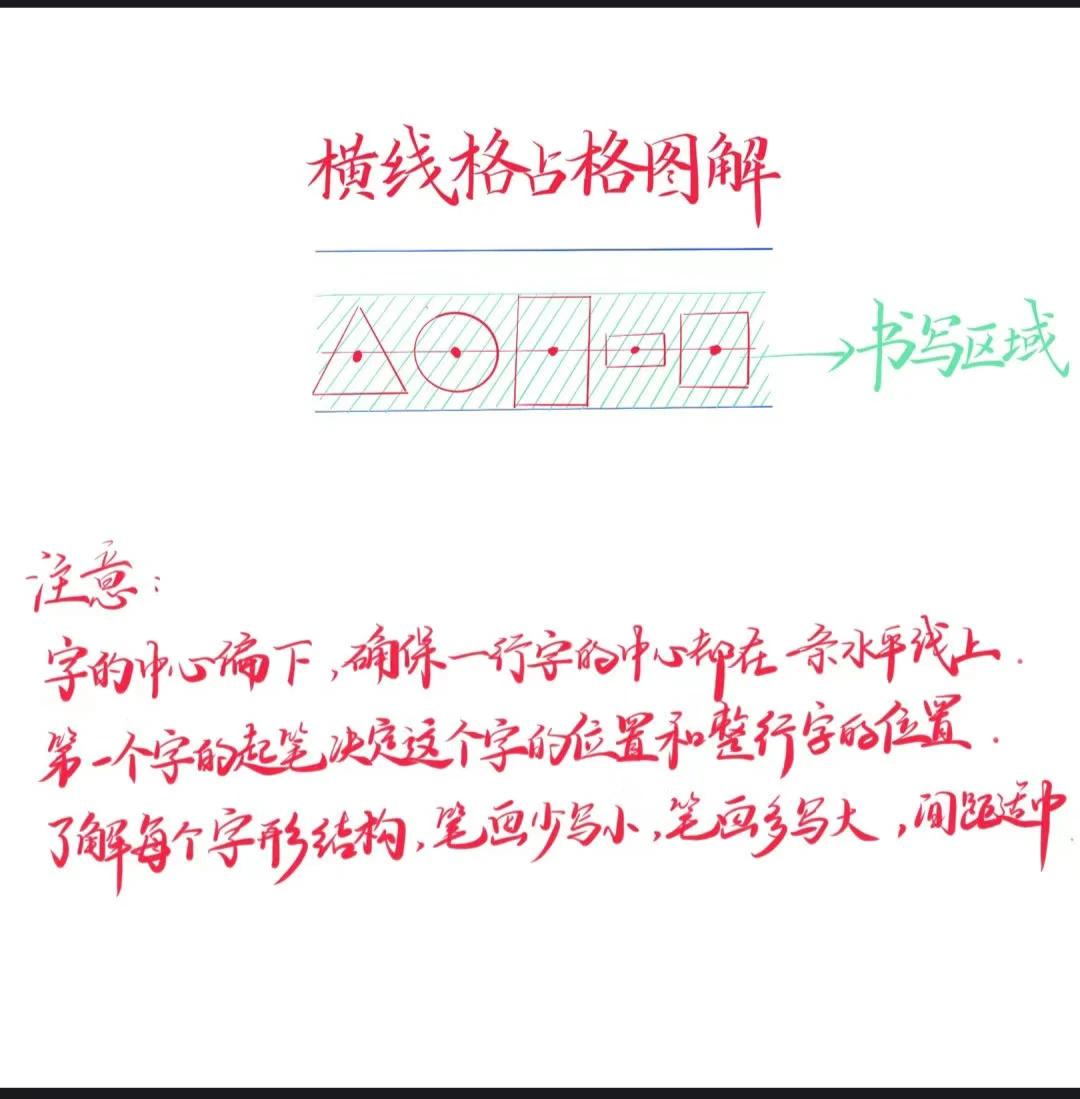 横线格占格图解
书写区域
注意：
字的中心偏下，确保一行字的中心都在一条水平线上.
第一个字的起笔决定这个字的位置和整行字的位置.
了解每个字形结构，笔画少写小，笔画多写大，间距适中.